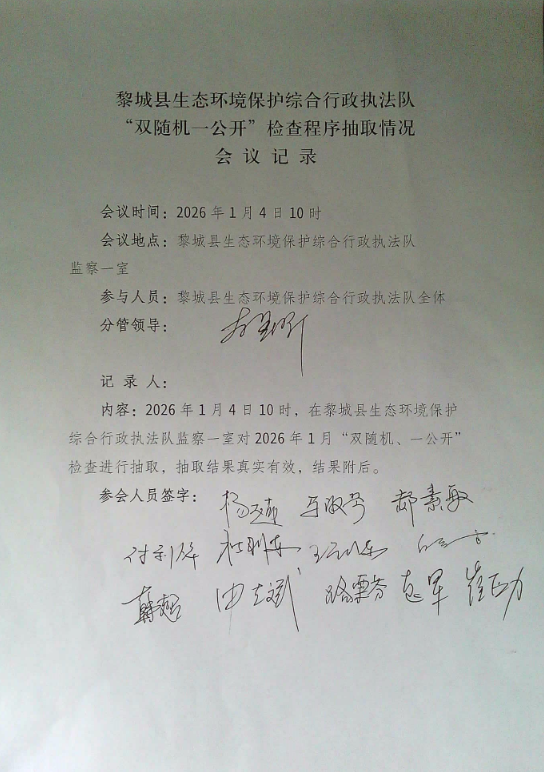 黎城县生态环境保护综合行政执法队
“双随机一公开”检查程序抽取情况
会 议 记 录
会议时间：2026 年 1 月 4 日 10 时
会议地点：黎城县生态环境保护综合行政执法队
监察一室
参与人员：黎城县生态环境保护综合行政执法队全体
分管领导：
记 录 人：
内容：2026 年 1 月 4 日 10 时，在黎城县生态环境保护
综合行政执法队监察一室对 2026 年 1 月“双随机、一公开”
检查进行抽取，抽取结果真实有效，结果附后。
参会人员签字： 郝素敏